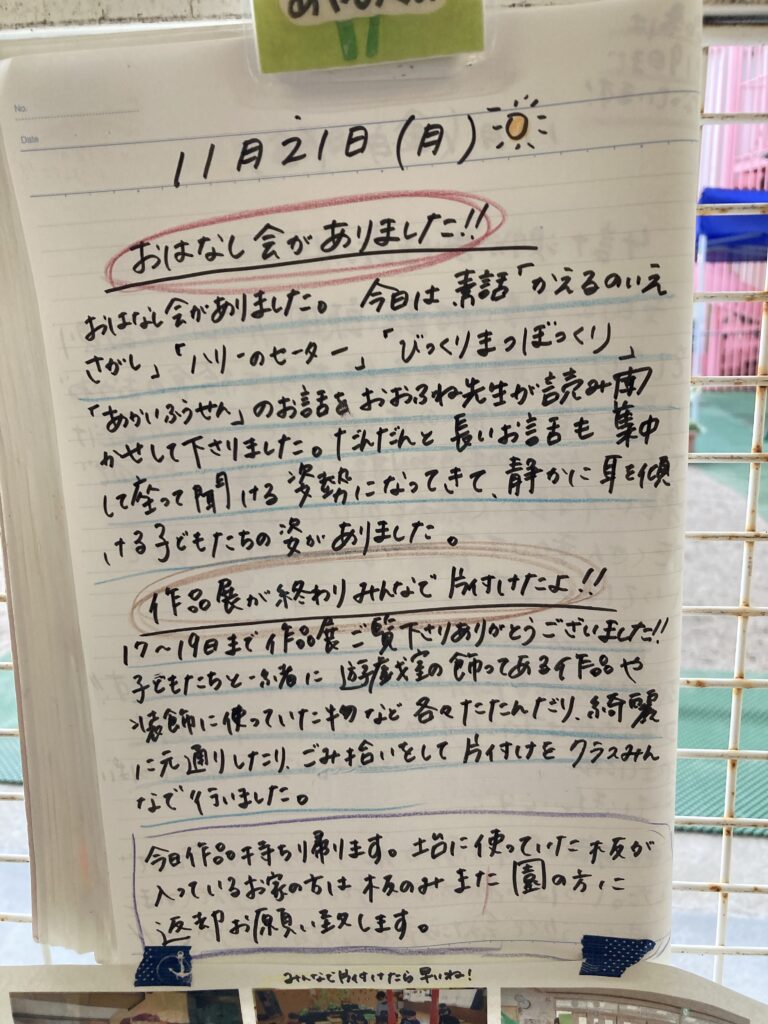 No.
Date
11月21日(月)
おはなし会がありました!!
おはなし会がありました。今日は素話「かえるのいえ
さがし」「ハリーのセーター」「びっくりまつぼっくり」
「あかいふうせん」のお話をおおふね先生が読み聞
かせして下さりました。だんだんと長いお話も集中
して座って聞ける姿勢になってきて、静かに耳を傾
ける子どもたちの姿がありました。
作品展が終わりみんなで片付けたよ!!
17〜19日まで作品展ご覧下さりありがとうございました!!
子どもたちと一緒に遊戯室の飾ってある作品や
装飾に使っていた物など各々たたんだり、綺麗
に元通りしたり、ごみ拾いをして片付けをクラスみん
なで行いました。
今日作品持ち帰ります。土台に使っていた板が
入っているお家の方は板のみまた園の方に
返却お願い致します。
みんなで片付けたら早いね!